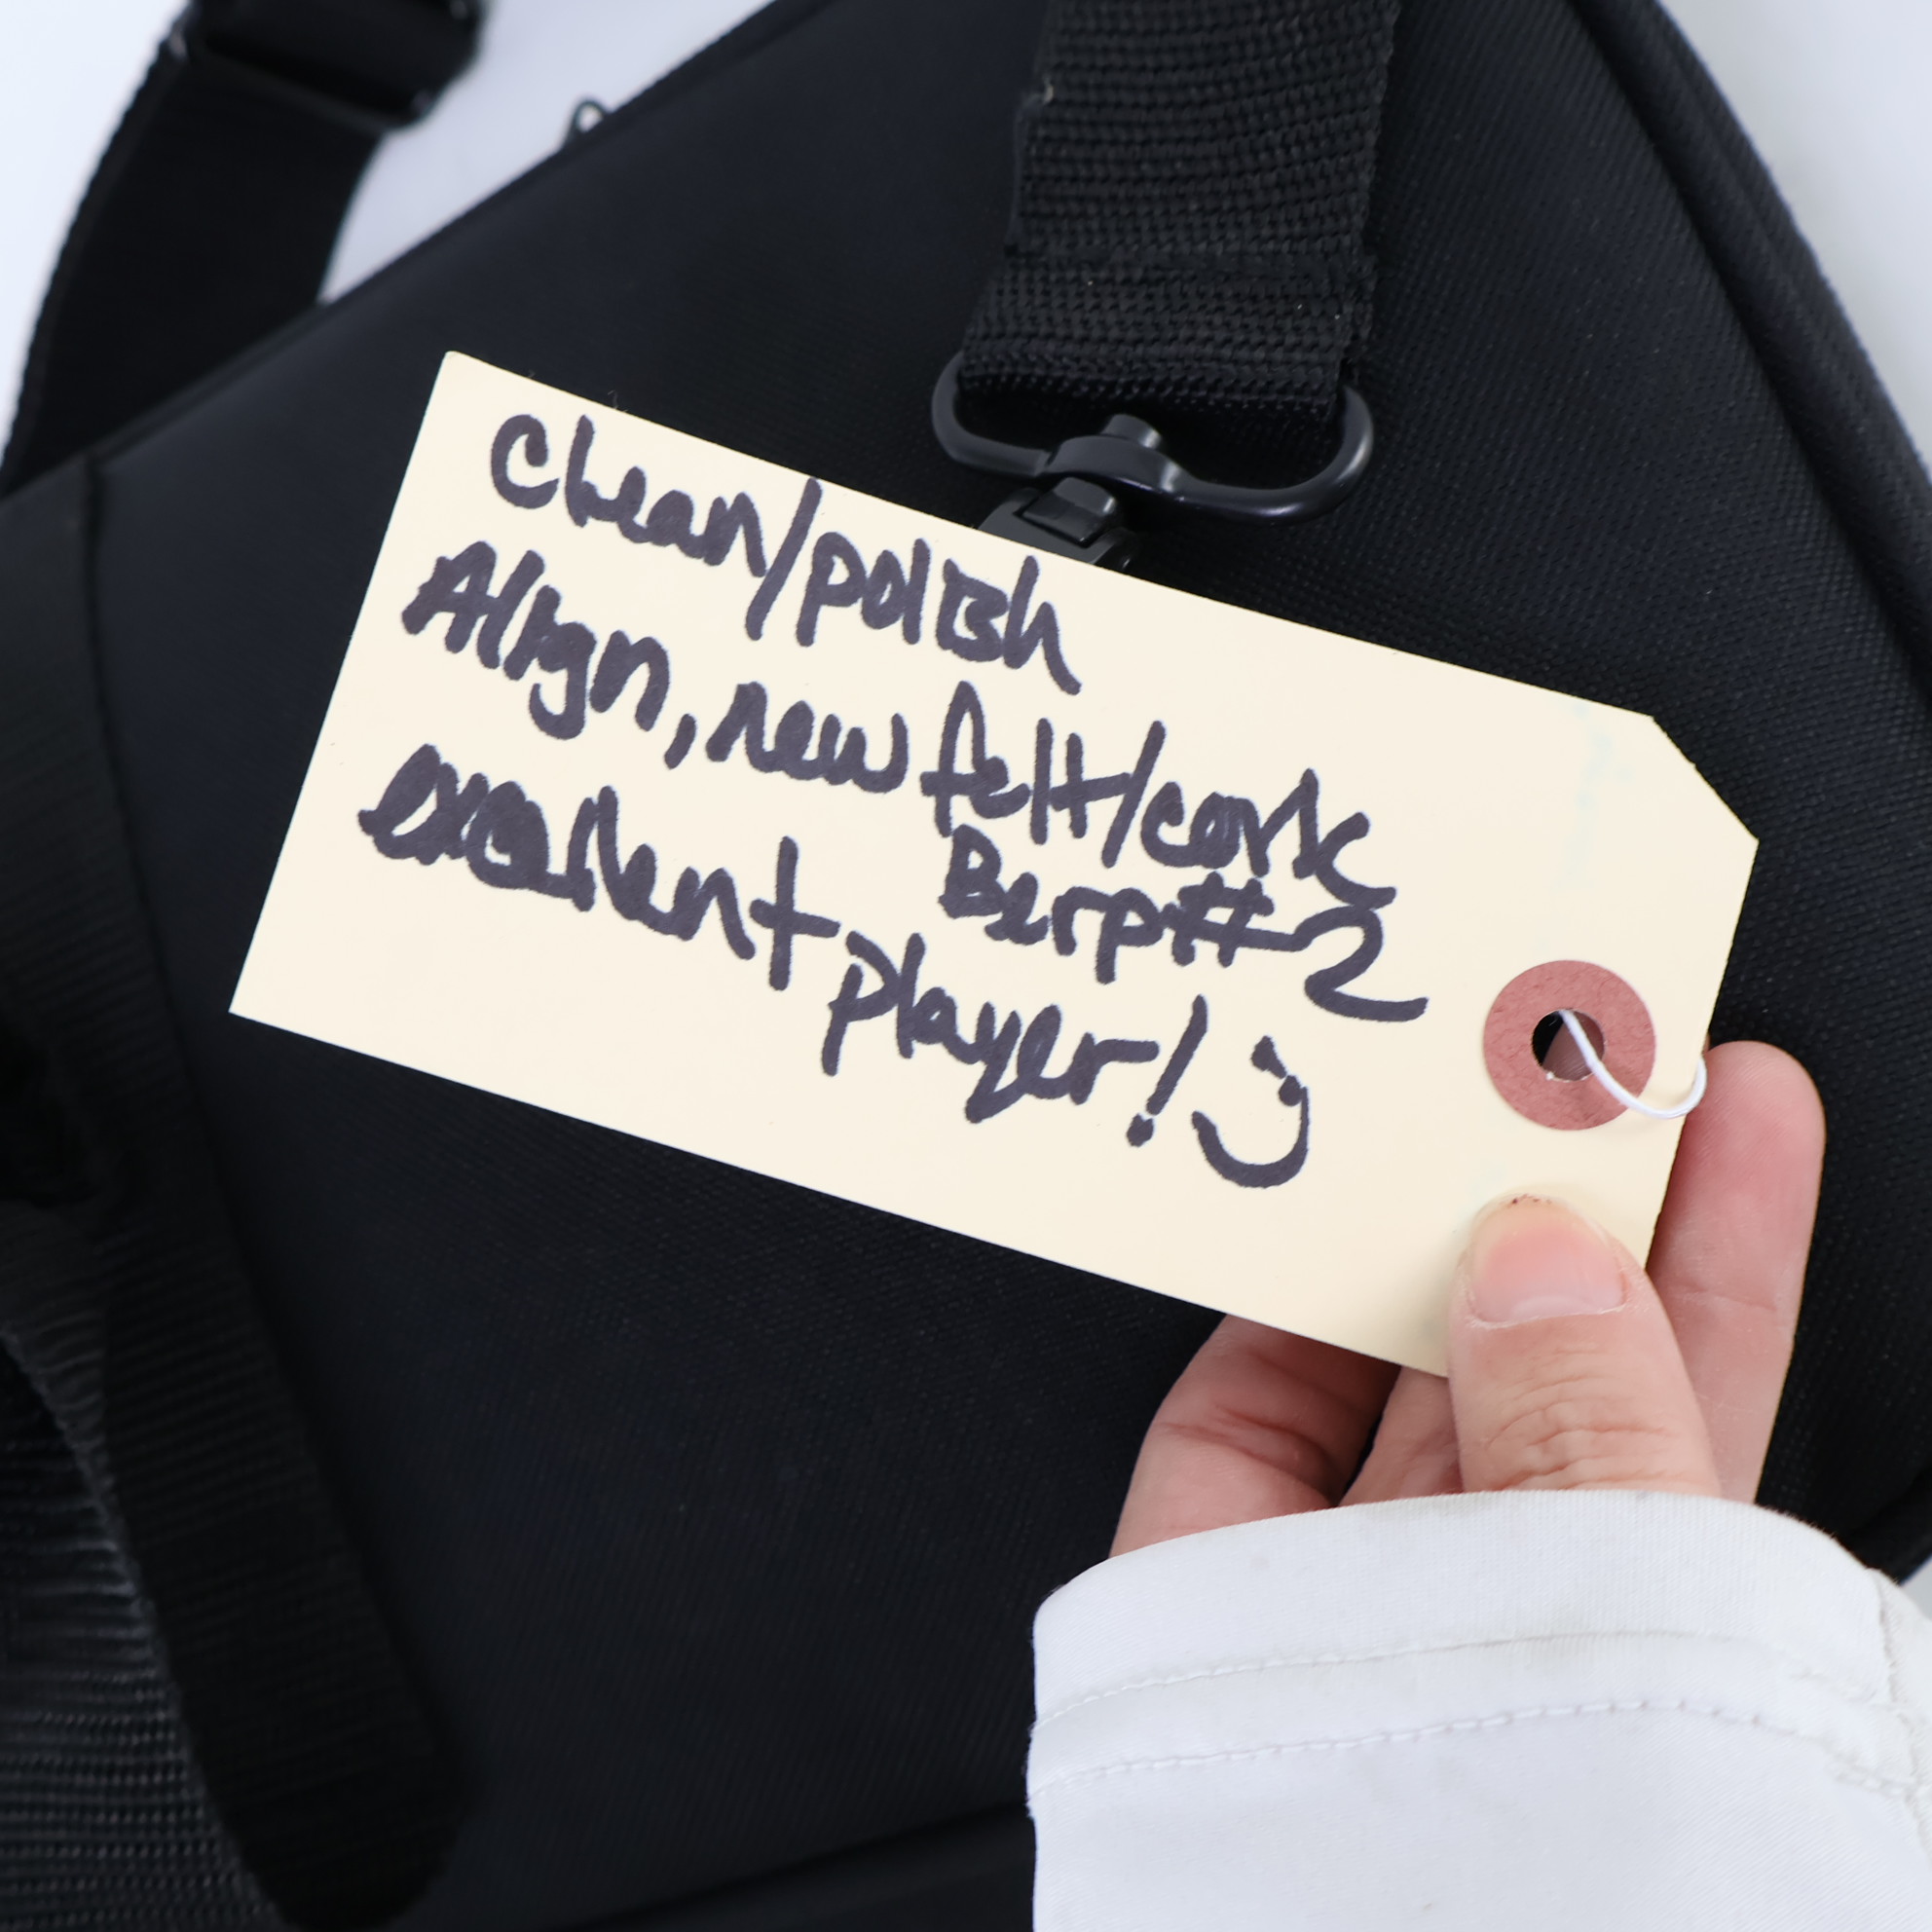 Clean/polish
Align, new felt/cork
Berp#2
excellent player! :)